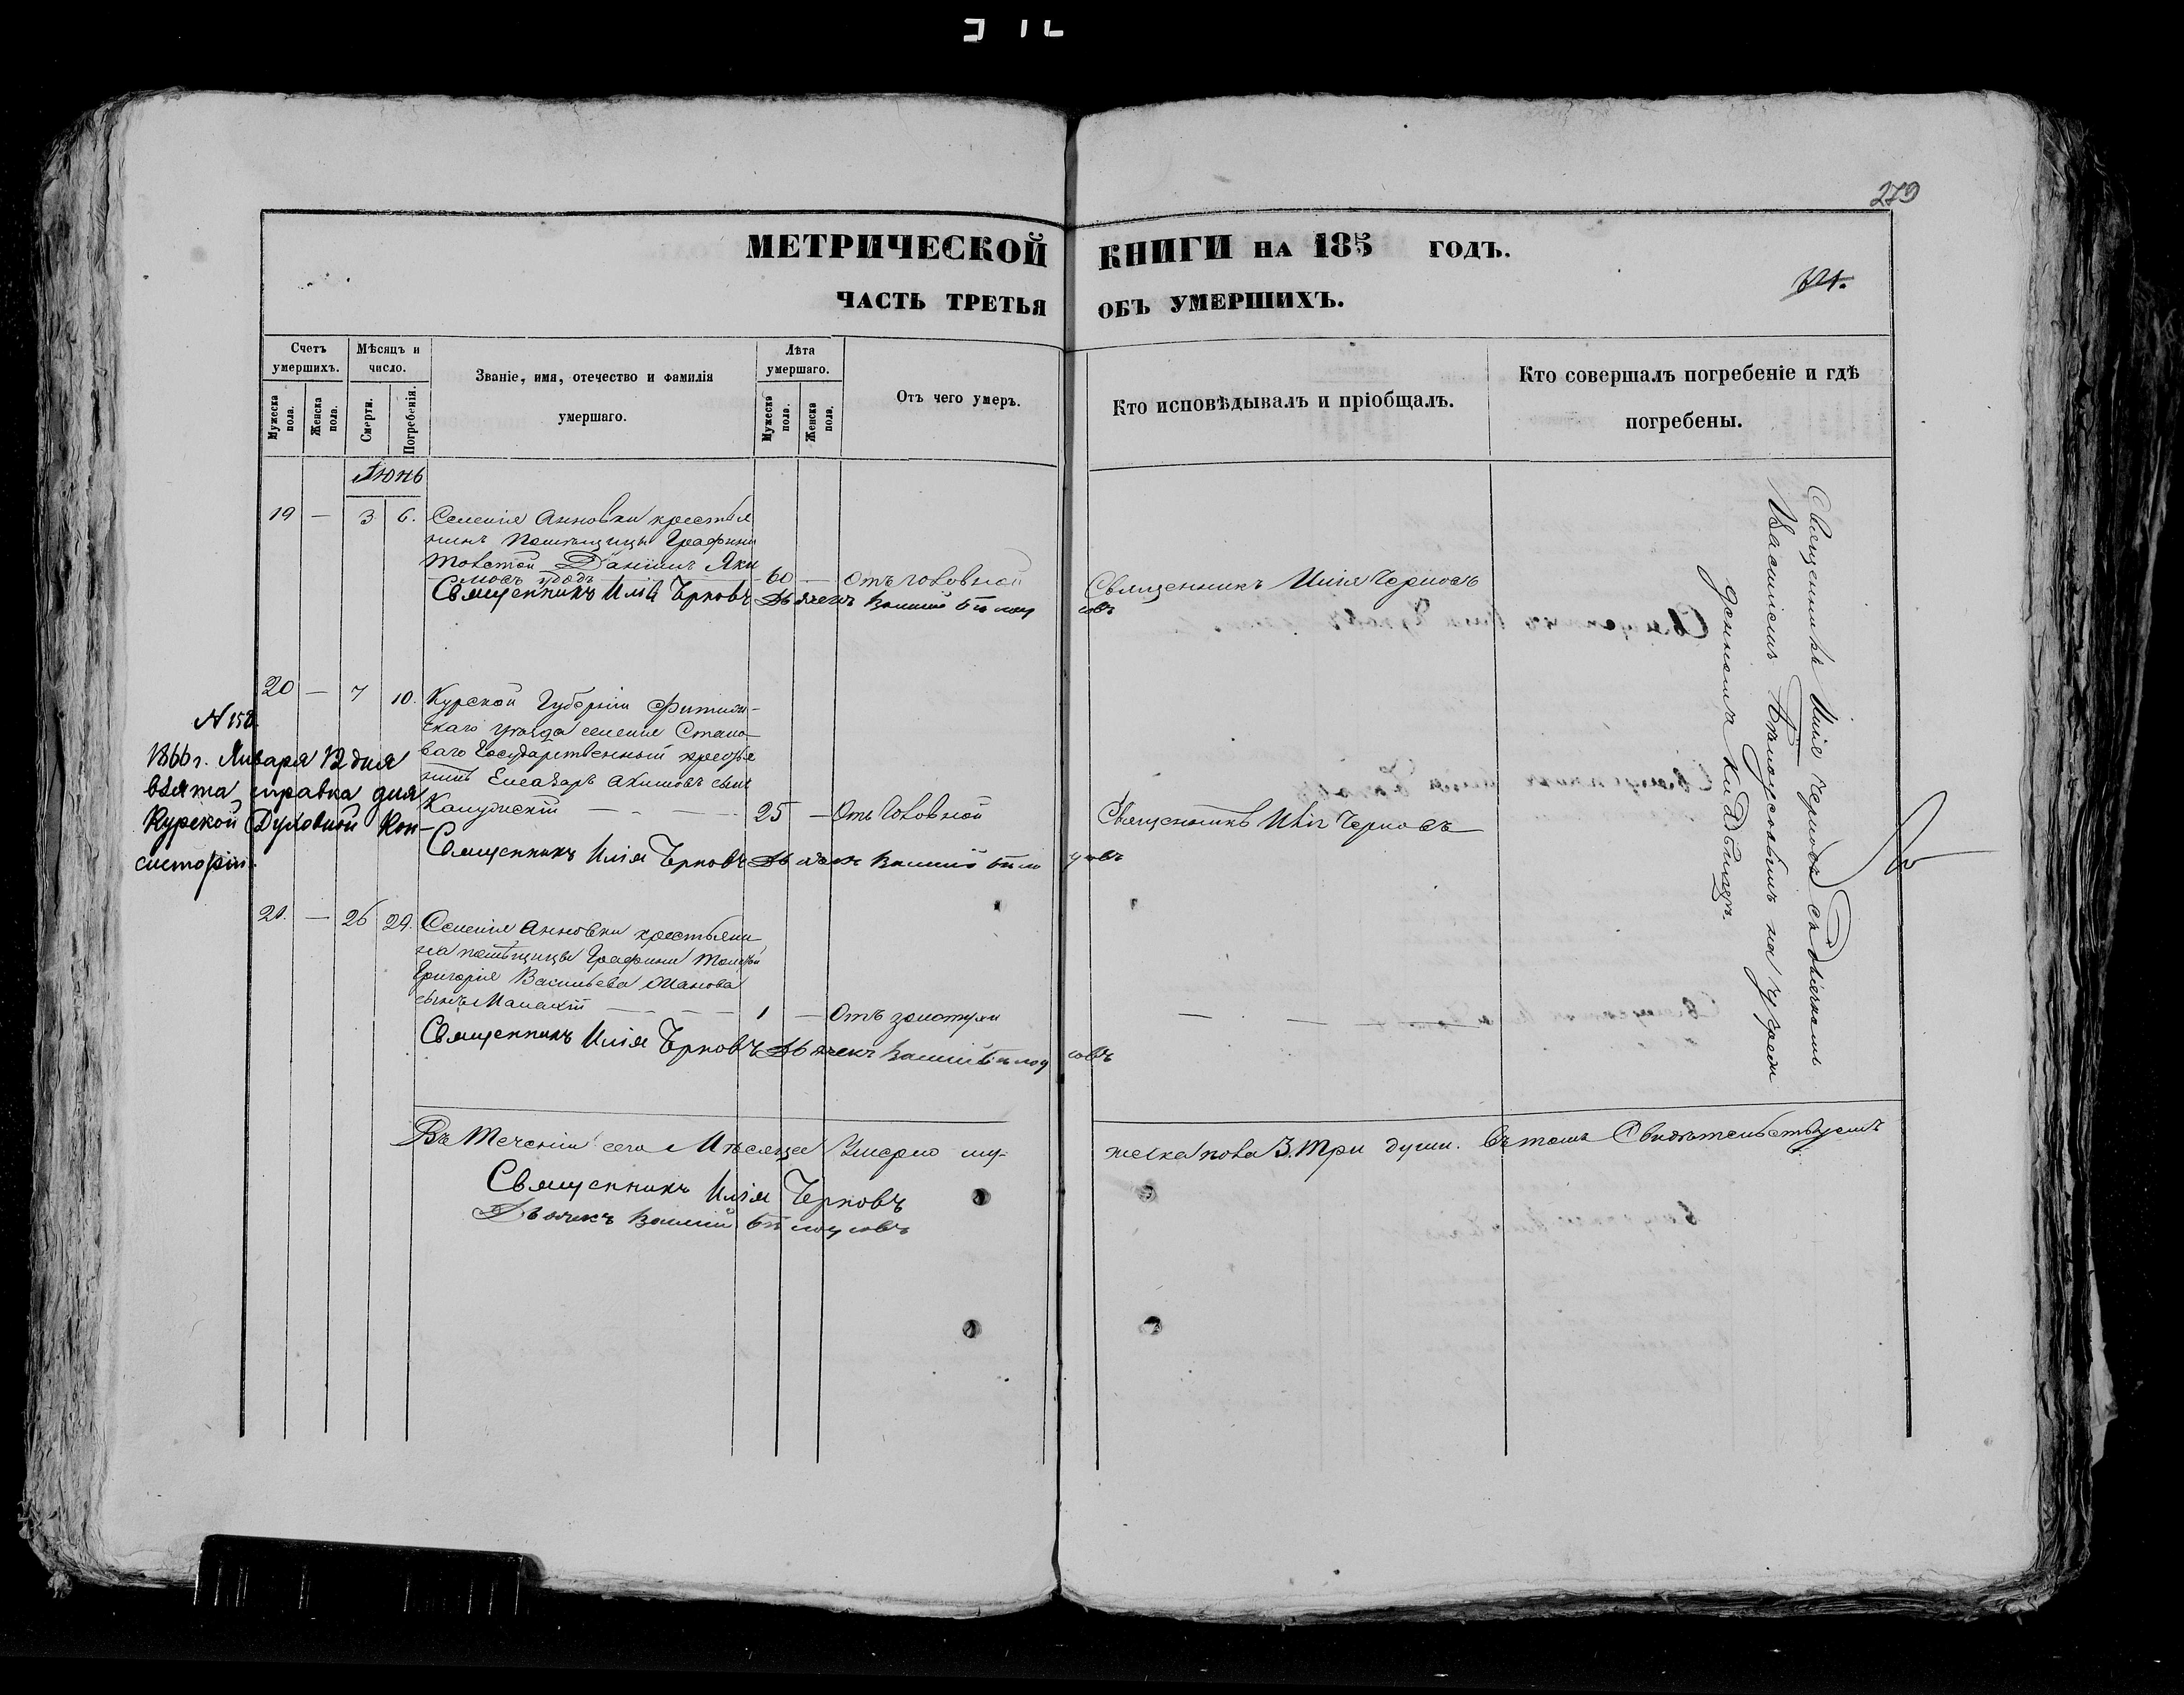 279
МЕТРИЧЕСКОЙ КНИГИ НА 185 ГОДЪ.
ЧАСТЬ ТРЕТЬЯ ОБЪ УМЕРШИХЪ.
Счетъ умершихъ.
Мужеска пола.
Женска пола.
Мѣсяцъ и число.
Смерти.
Погребенія.
Званіе, имя, отечество и фамилія умершаго.
Лѣта умершаго.
Мужеска пола.
Женска пола.
Отъ чего умеръ.
Кто исповѣдывалъ и пріобщалъ.
Кто совершалъ погребеніе и гдѣ погребены.
Июнь
19 — 3 6. Селенія Анновки крестья
нинъ помѣщицы Графини
Толстой Даніилъ Яки
мовъ 60 — Отъ головной Священникъ Илія Черновъ
Священникъ Илія Черновъ Дьячекъ Василій Бѣлоусовъ
20 — 7 10. Курской Губерніи
скаго уѣзда селенія Стано
ваго Государственный крестья
нинъ Елеазаръ Акимовъ сынъ
25 — Отъ головной Священникъ Илія Черновъ
Священникъ Илія Черновъ Дьячекъ Василій Бѣлоусовъ
N 158
1866 г. Января 12 дня
взята справка для
Курской Духовной Кон-
систоріи.
21. — 26 29. Селенія Анновки крестьяни
на помѣщицы Графини Толстой
Григорія Васильева
сынъ 1 — Отъ золотухи
Священникъ Илія Черновъ Дьячекъ Василій Бѣлоусовъ
Священникъ Илія Черновъ съ Дьячкомъ
Василіемъ Бѣлоусовымъ на учреж
денномъ кладбищѣ.
Въ теченіи сего Мѣсяца Умерло му-
жеска пола 3. три души. Въ томъ Свидѣтельствуемъ
Священникъ Илія Черновъ
Дьячекъ Василій Бѣлоусовъ